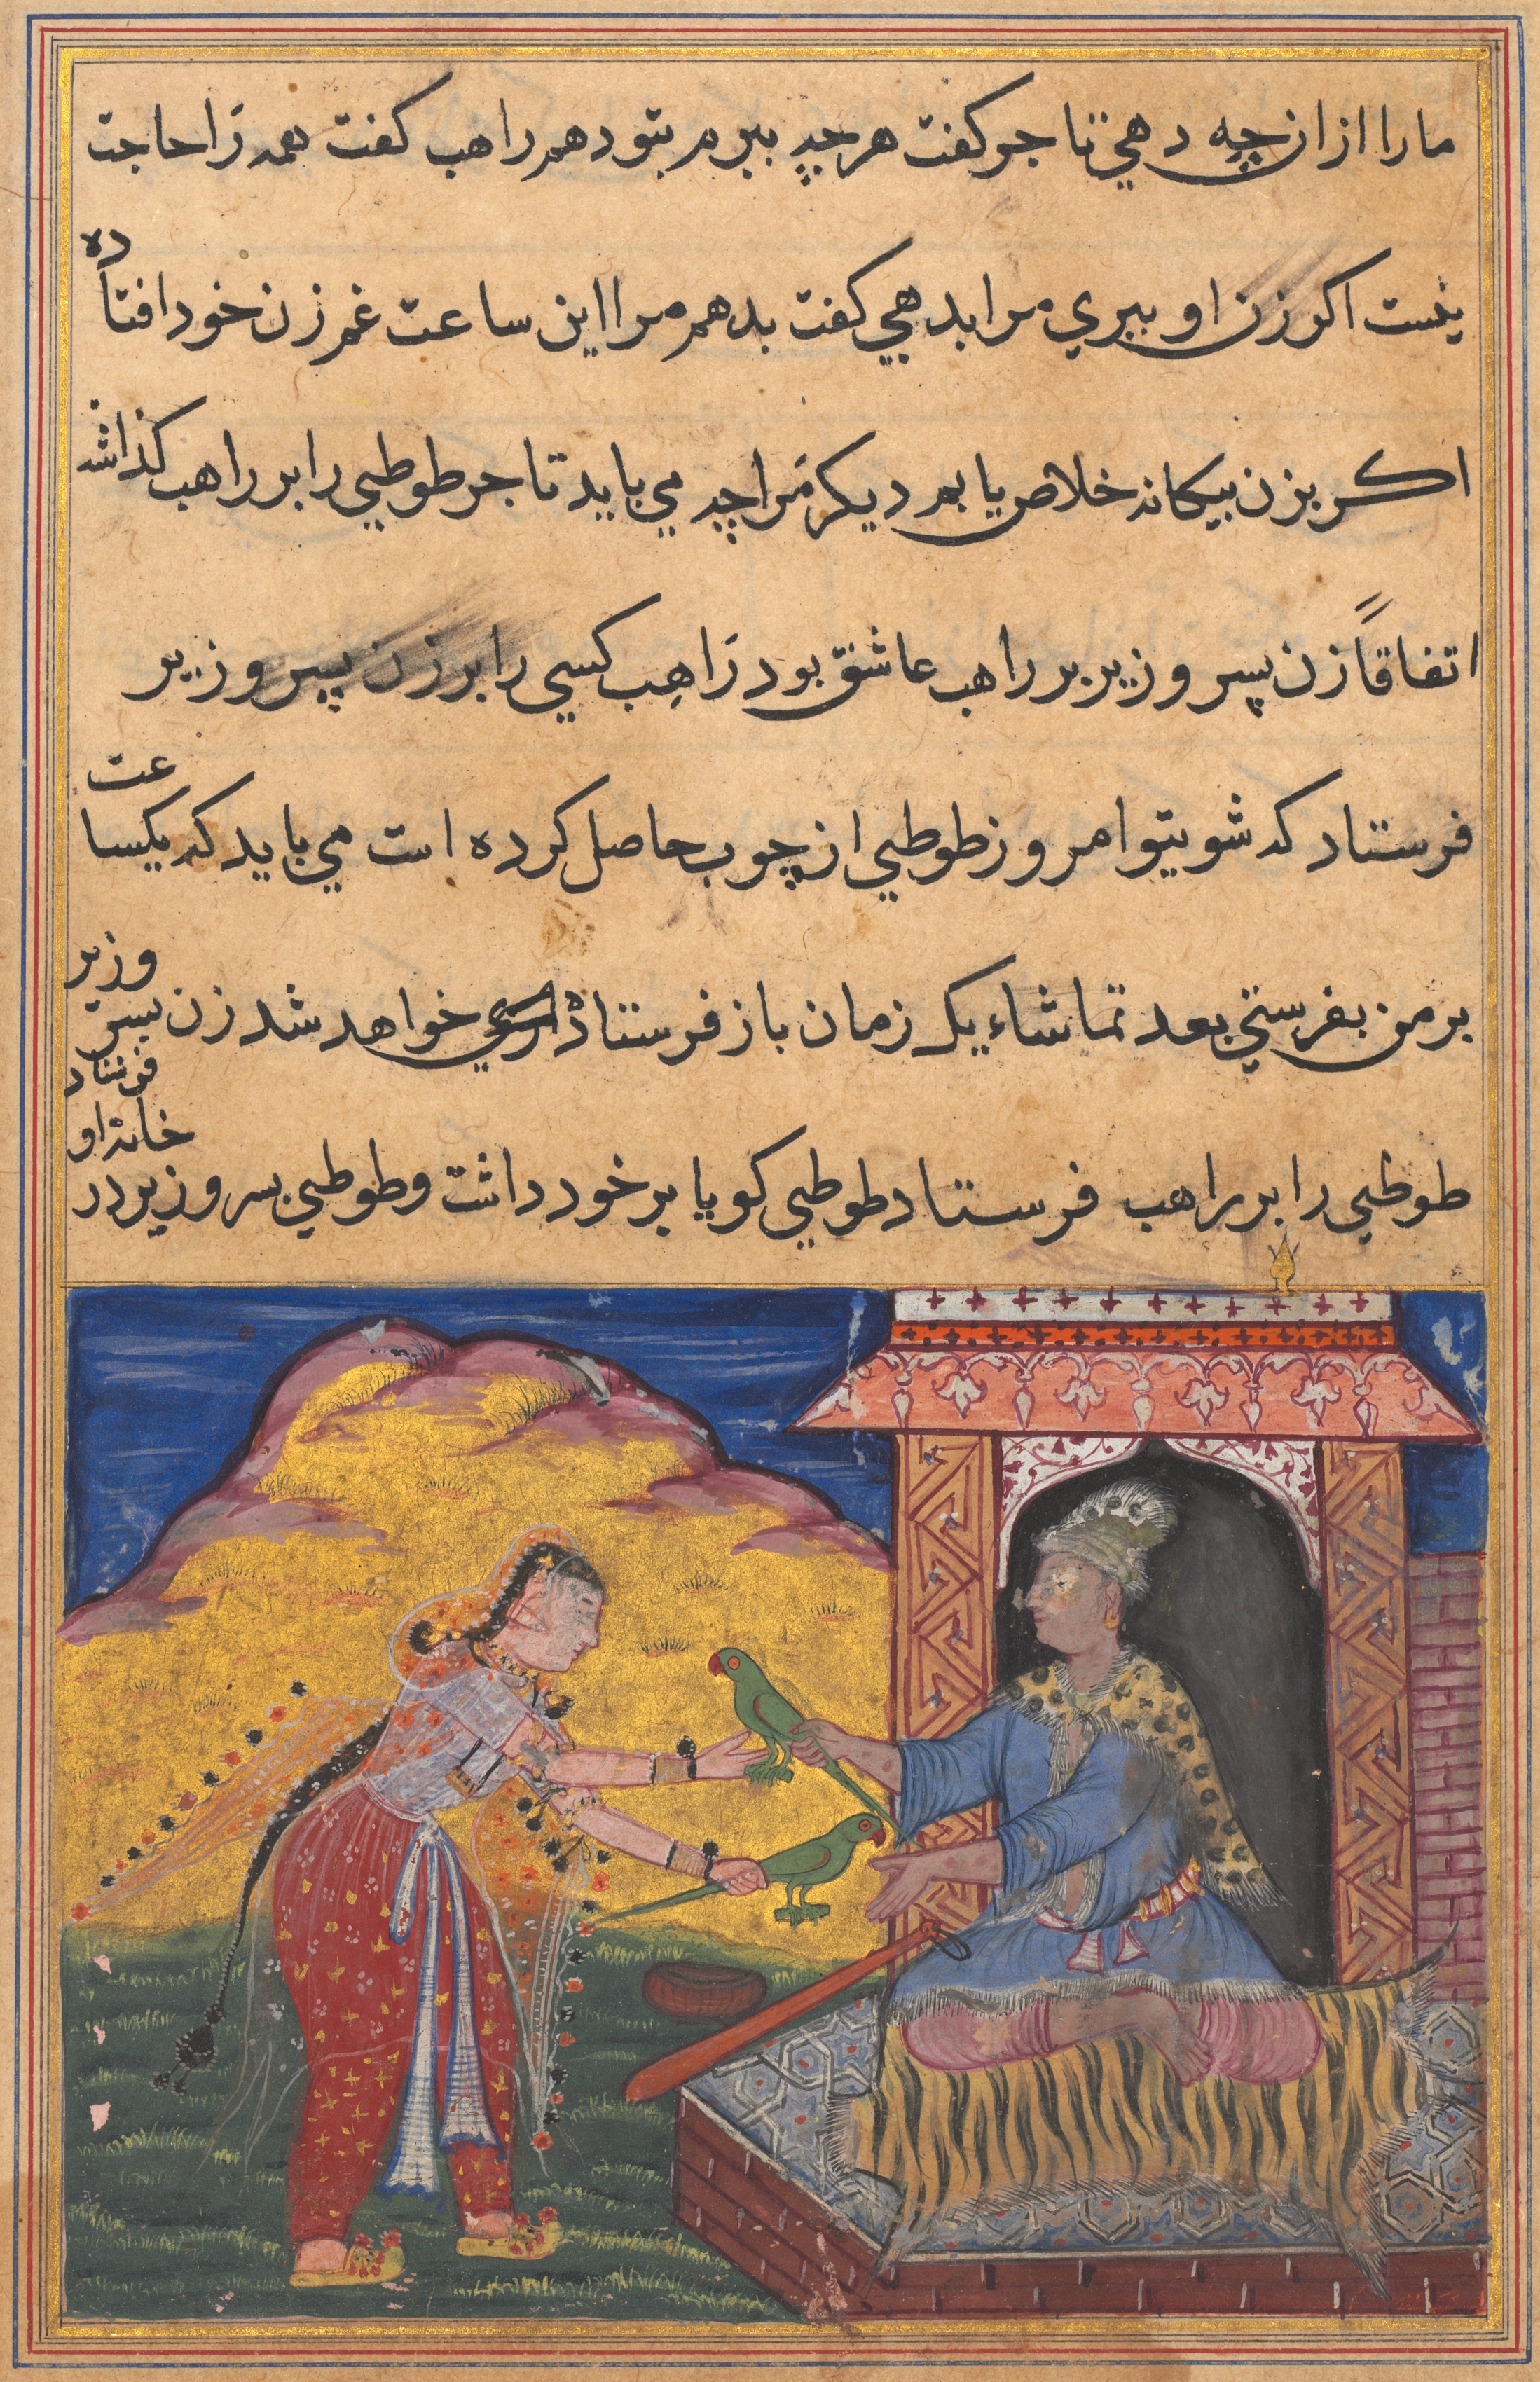 مارا ازان چه دهي تاجر كفت هرچه ببرم بتو دهم راهب كفت همه را حاجت
نيست اكر زن او ببري مرا بدهي كفت بدهم مرا اين ساعت غم زن خود افتاده
اكر بزن بيكانه خلاص يابم ديكر مرا چه مي بايد تاجر طوطي را بر راهب كذاشت
اتفاقاً زن پسر وزير بر راهب عاشق بود راهِب كسي را بر زن پسر وزير
فرستاد كه شويتو امروز طوطي از چوب حاصل كرده است مي بايد كه يكساعت
بر من بفرستي بعد تماشاء يك زمان باز فرستاده خواهد شد زن پسر وزير
طوطي را بر راهب فرستاد طوطي كويا بر خود داشت و طوطي پسر وزير در خانه او فرستاد